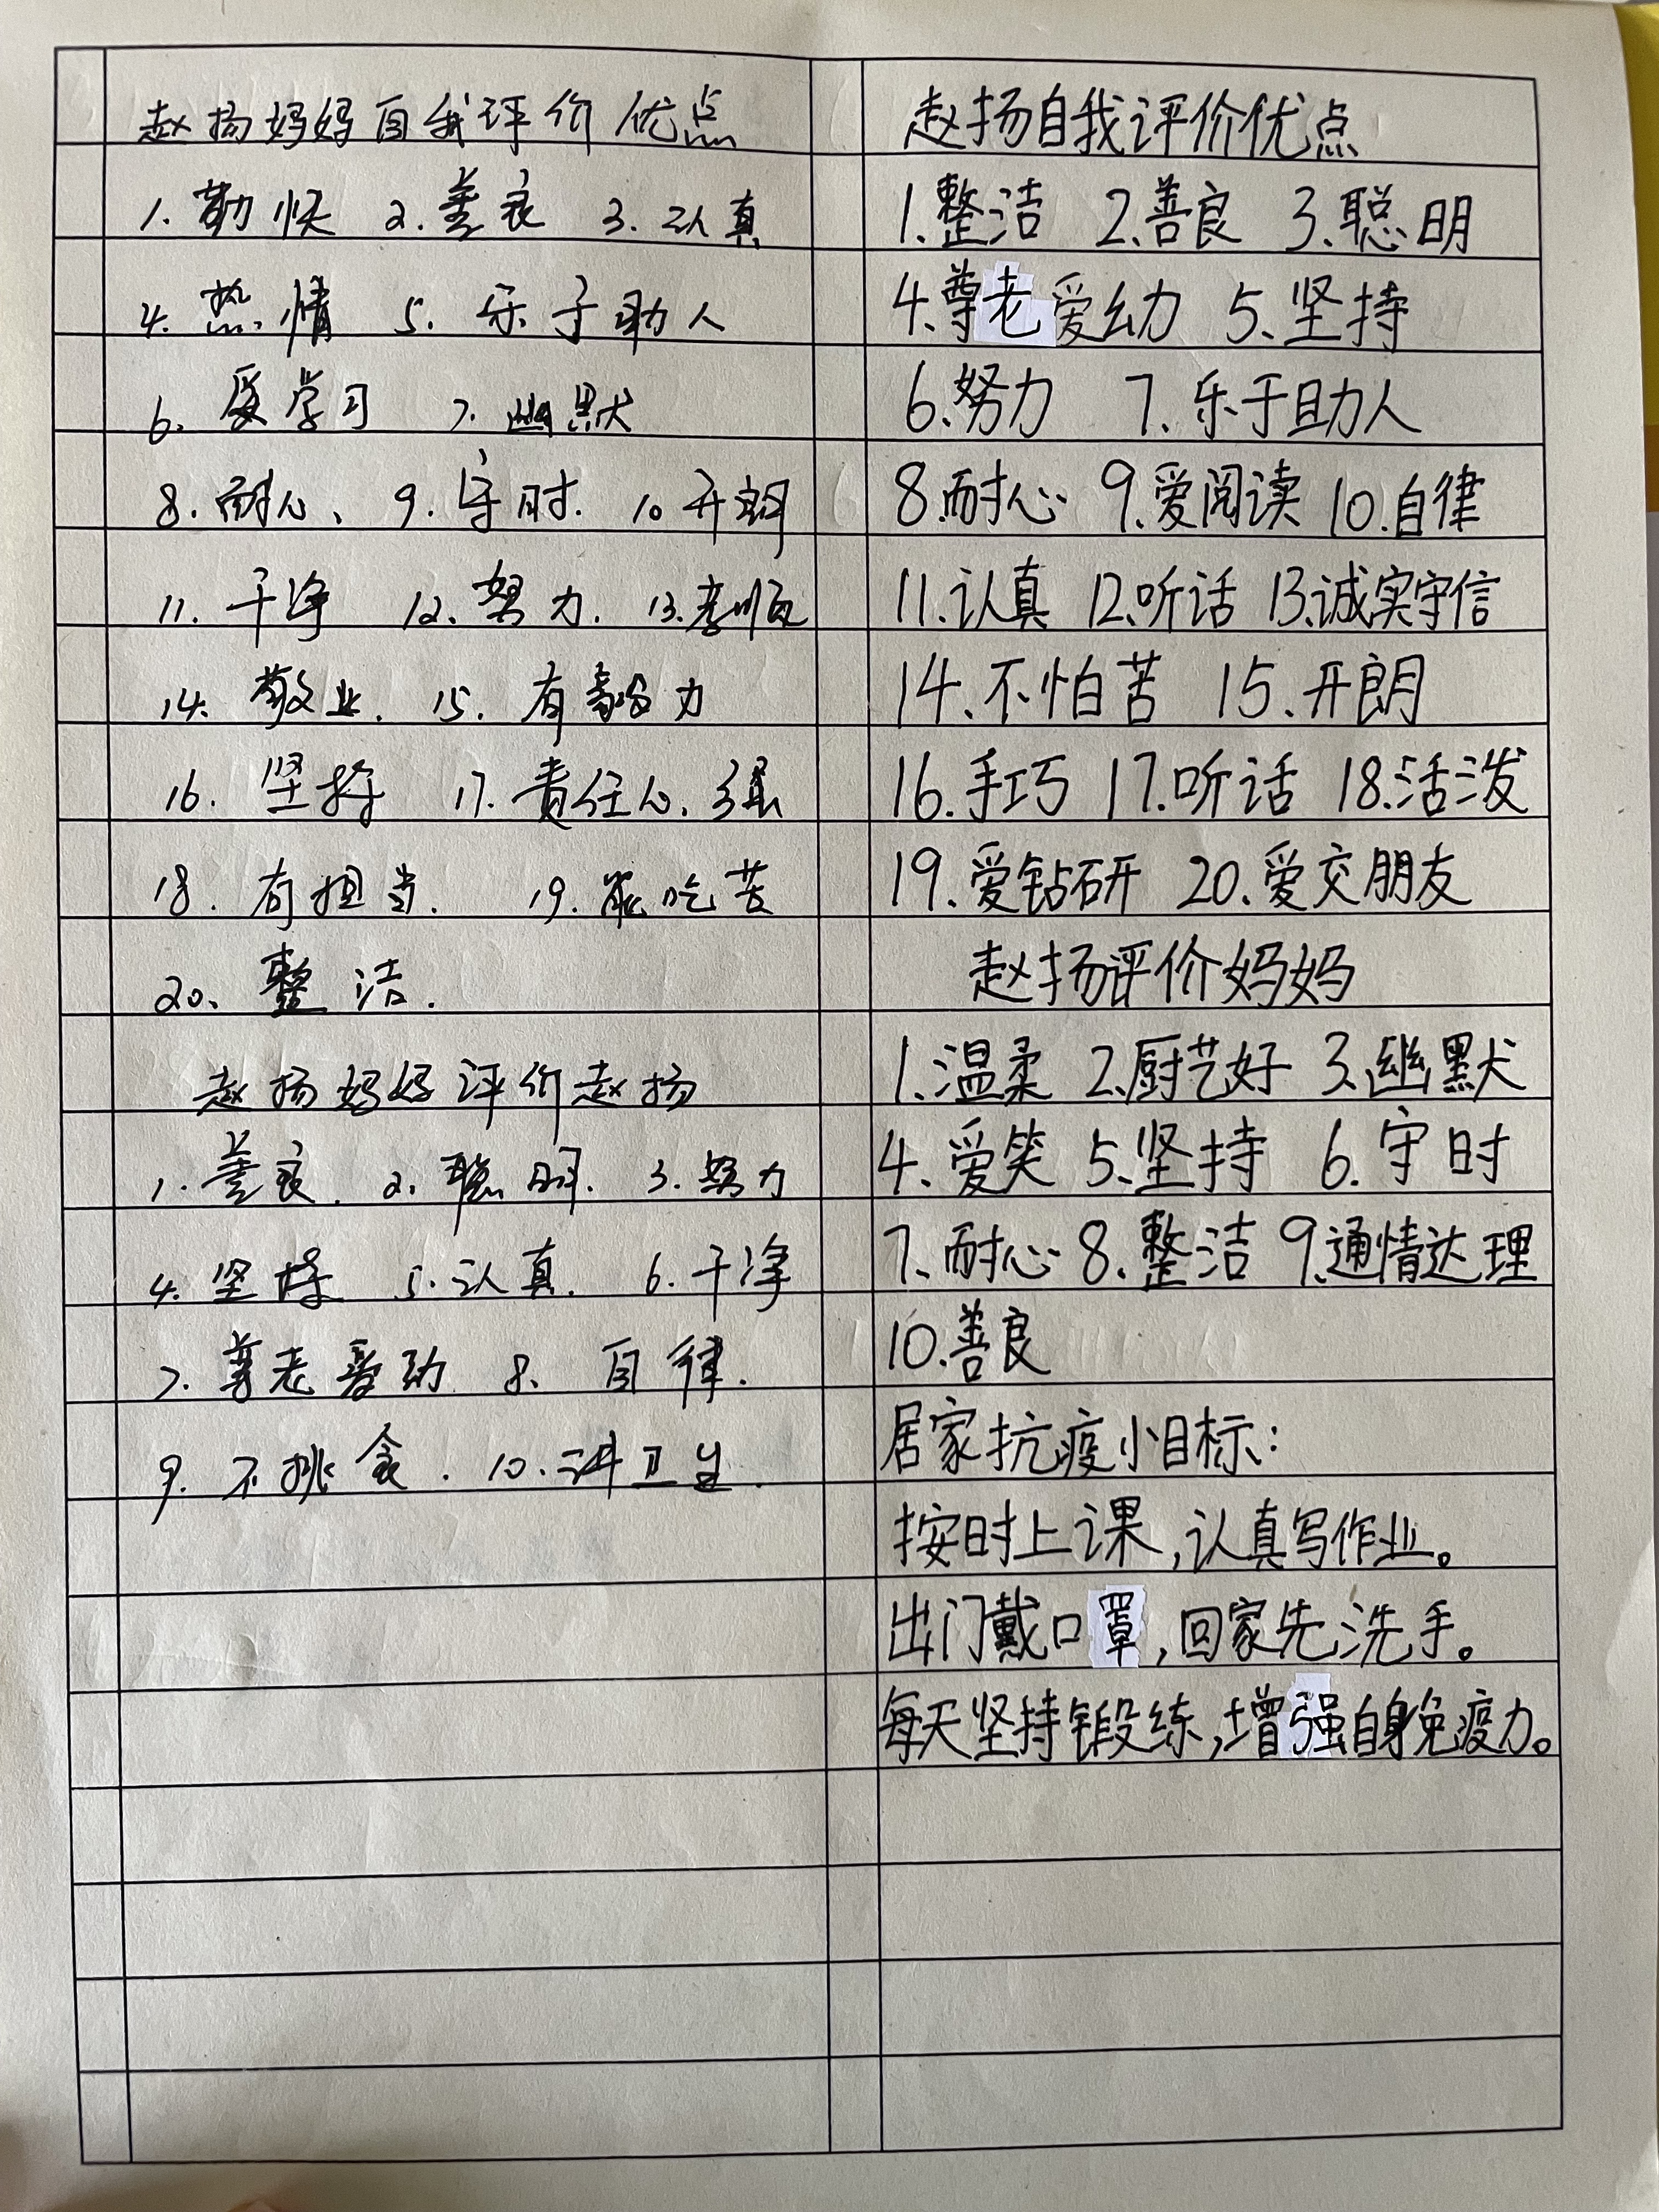 赵扬妈妈自我评价优点
1.勤快 2.善良 3.认真
4.热情 5.乐于助人
6.爱学习 7.幽默
8.耐心、9.守时.10.开朗
11.干净 12.努力.13.孝顺
14.敬业.15.有毅力
16.坚持 17.责任心强
18.有担当.19.能吃苦
20、整洁.
赵扬妈妈评价赵扬
1.善良.2.聪明.3.努力
4.坚持 5.认真.6.干净
7.尊老爱幼 8.自律.
9.不挑食.10.讲卫生.
赵扬自我评价优点
1.整洁 2.善良 3.聪明
4.尊老爱幼 5.坚持
6.努力 7.乐于助人
8.耐心 9.爱阅读 10.自律
11.认真 12.听话 13.诚实守信
14.不怕苦 15.开朗
16.手巧 17.听话 18.活泼
19.爱钻研 20.爱交朋友
赵扬评价妈妈
1.温柔 2.厨艺好 3.幽默
4.爱笑 5.坚持 6.守时
7.耐心 8.整洁 9.通情达理
10.善良
居家抗疫小目标:
按时上课,认真写作业。
出门戴口罩,回家先洗手。
每天坚持锻练,增强自身免疫力。